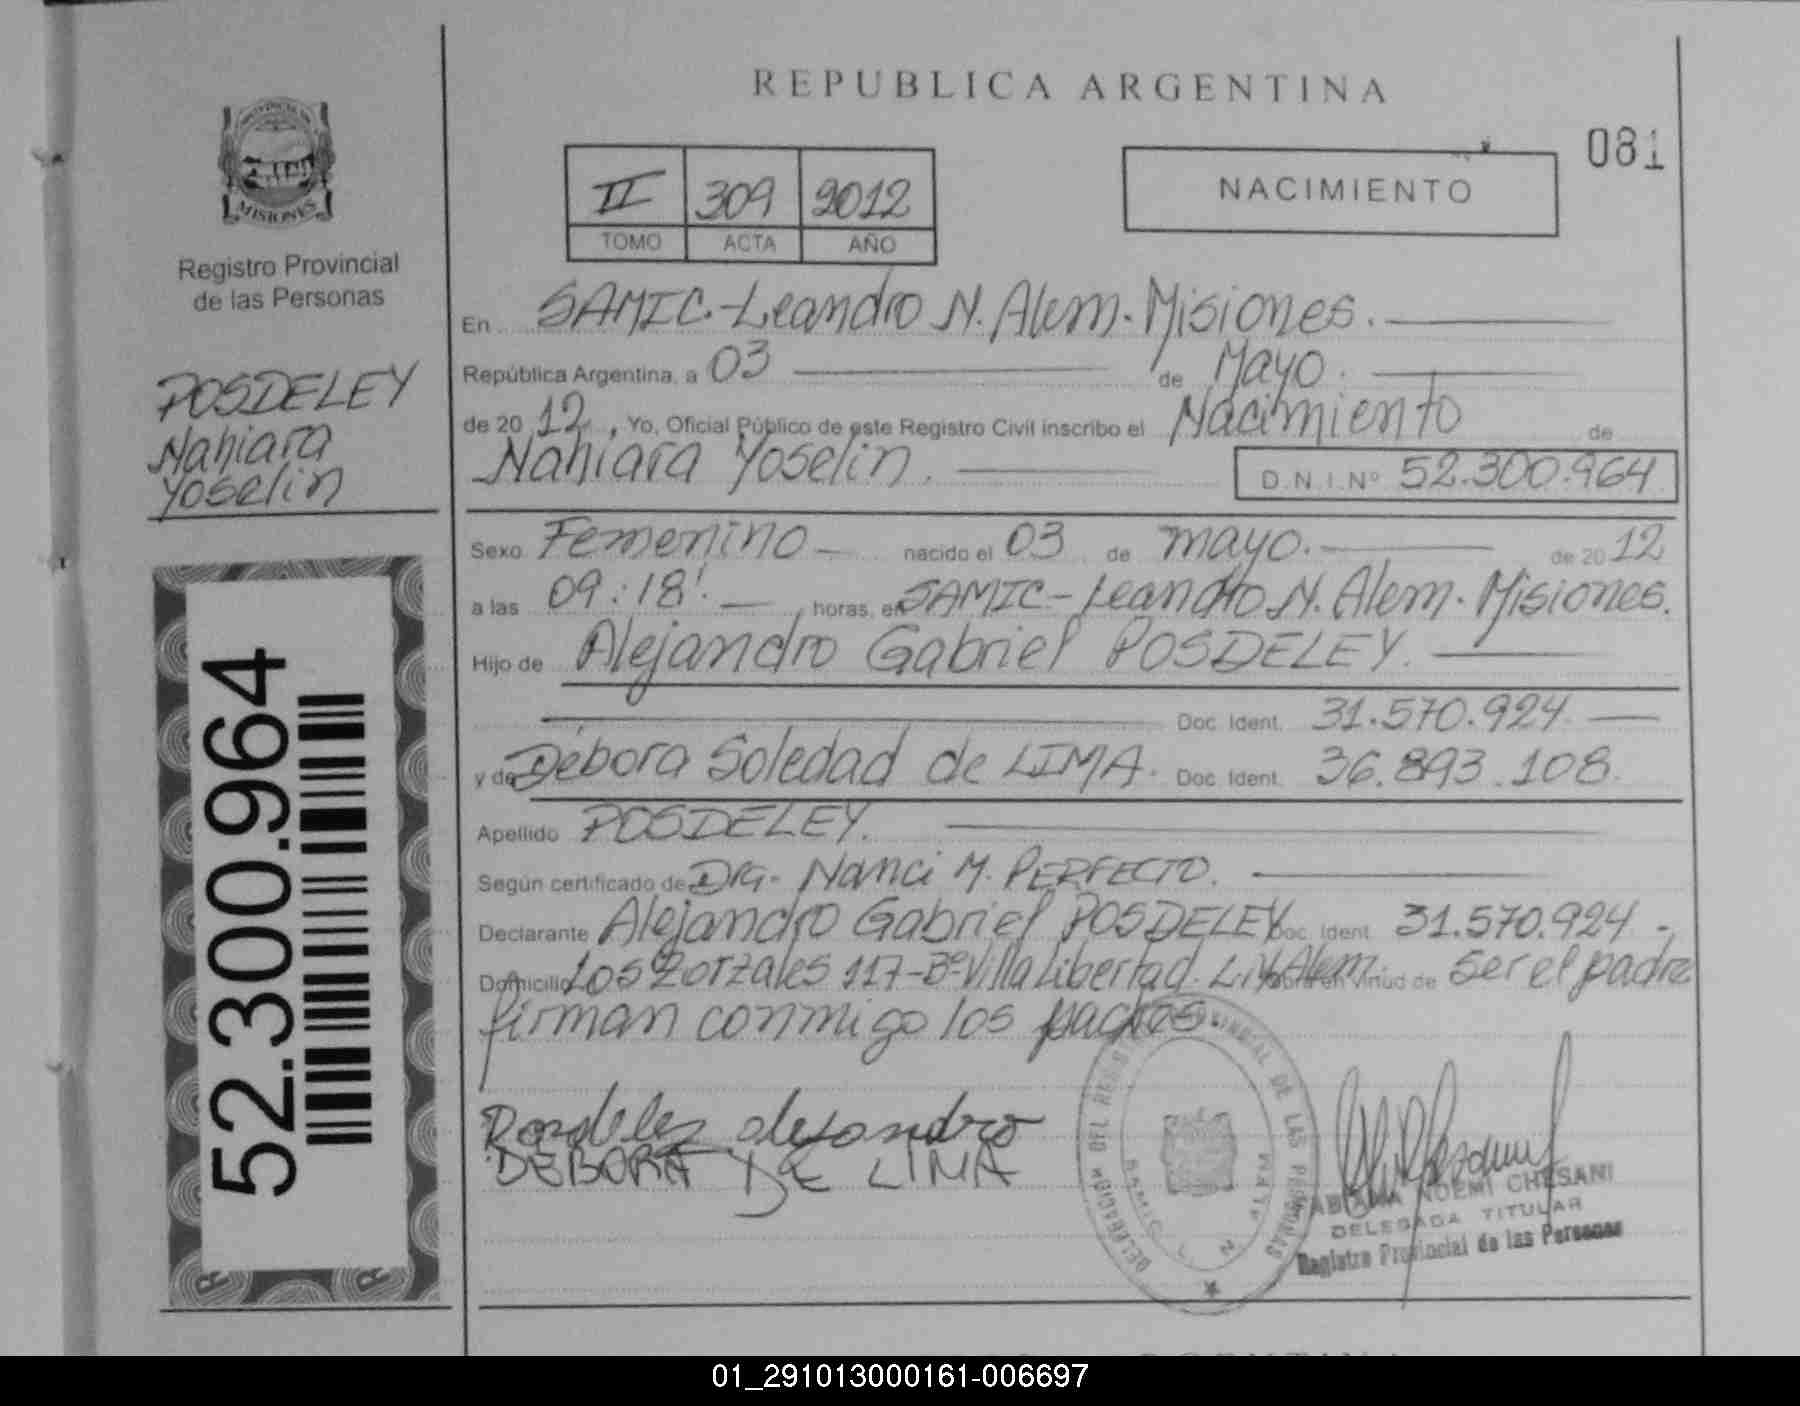 REPUBLICA ARGENTINA
081
II 309 2012
TOMO ACTA AÑO
NACIMIENTO
MISIONES
Registro Provincial
de las Personas
POSDELEY
Nahiara
Yoselin
52.300.964
En SAMIC-Leandro N. Alem-Misiones.
República Argentina, a 03 de Mayo.
de 20 12, Yo, Oficial Público de este Registro Civil inscribo el Nacimiento de
Nahiara Yoselin. D.N.I.Nº 52.300.964
Sexo Femenino nacido el 03 de mayo. de 20 12
a las 09:18' horas, en SAMIC-Leandro N. Alem-Misiones.
Hijo de Alejandro Gabriel POSDELEY.
Doc. Ident. 31.570.924
y de Débora Soledad de LIMA. Doc. Ident. 36.893.108.
Apellido POSDELEY.
Según certificado de Dra. Nanci M. PERFECTO.
Declarante Alejandro Gabriel POSDELEY Doc. Ident. 31.570.924-
Domicilio Los Zorzales 117-Bº Villa Libertad. L.N.Alem. obra en virtud de ser el padre
firman conmigo los padres.
alejandro
DEBORA DE LIMA
DEL REGISTRO PROVINCIAL DE LAS PERSONAS
SAMIC
NOEMI CHESANI
DELEGADA TITULAR
Registro Provincial de las Personas
01_291013000161-006697